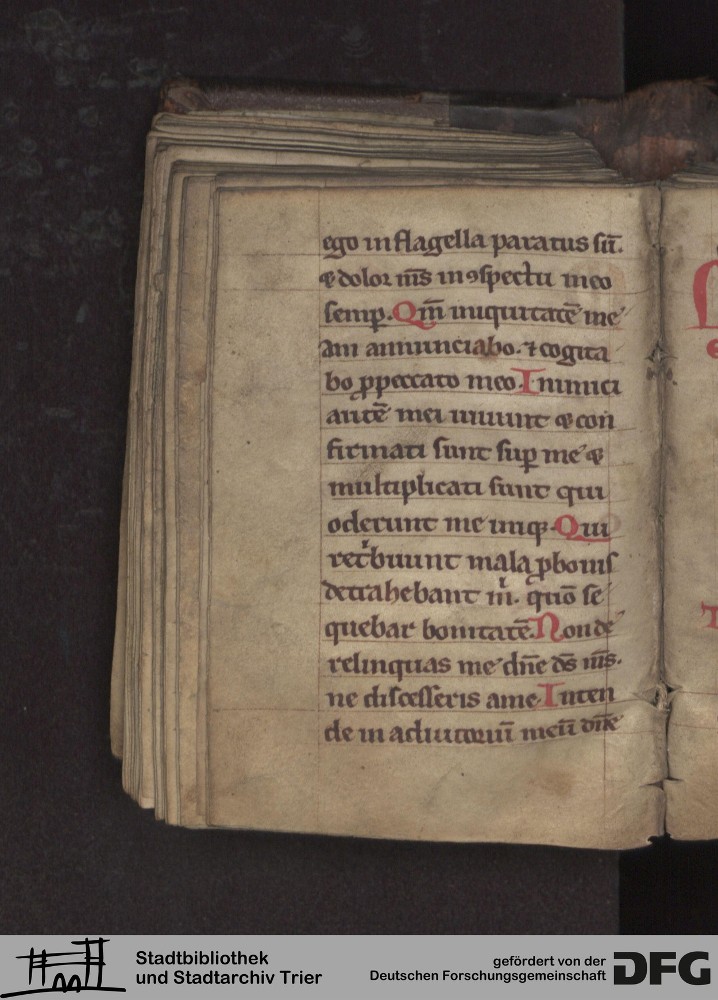 ego in flagella paratus sū.
⁊ dolor m̄s in ꝯspectu meo
semꝑ. Qm̄ iniquitatē me
am annunciabo. ⁊ cogita
bo ꝓ peccato meo. Inimici
autē mei uiuunt ⁊ con
firmati sunt suꝑ me ⁊
multiplicati sunt qui
oderunt me iniq. Qui
ret͛buunt mala ꝓ bonis
detrahebant m̄. quō se
quebar bonitatē. Non de
relinquas me dn̄e ds̄ m̄s.
ne discesseris a me. Inten
de in adiutoriū meū dn̄e
Stadtbibliothek
und Stadtarchiv Trier
gefördert von der
Deutschen Forschungsgemeinschaft
DFG